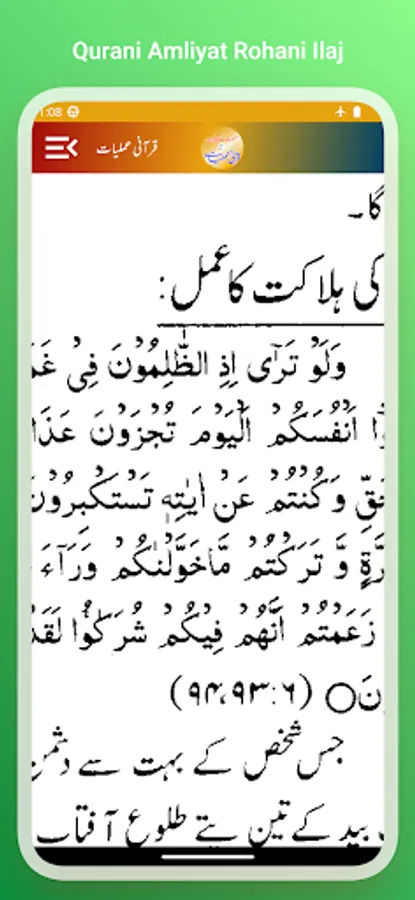 Qurani Amliyat Rohani Ilaj
1:08
قرآنی عملیات
گا۔
کی ہلاکت کا عمل:
وَلَوْ تَرٰٓى اِذِ الظّٰلِمُوْنَ فِیْ غَمَ
اَنْفُسَكُمْ اَلْيَوْمَ تُجْزَوْنَ عَذَا
حَقِّ وَكُنْتُمْ عَنْ اٰيٰتِهٖ تَسْتَكْبِرُوْنَ
رَّةٍ وَّ تَرَكْتُمْ مَّاخَوَّلْنٰكُمْ وَرَآءَ
زَعَمْتُمْ اَنَّهُمْ فِيْكُمْ شُرَكٰٓؤُا لَقَدْ
نَ○ (۶:۹۳،۹۴)
جس شخص کے بہت سے دشمن
بید کے تین پتے طلوع آفتاب